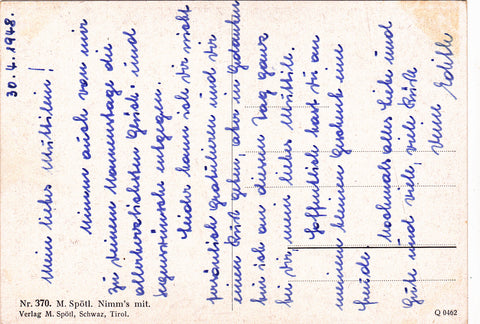 30.4.1948.
Mein liebes Muttilein!
Nimm auch von mir
zu deinem Namenstage die
allerherzlichsten Glück- und
Segenswünsche entgegen.
Leider kann ich dir nicht
persönlich gratulieren und dir
einen Kuß geben, aber in Gedanken
bin ich an diesem Tag ganz
bei dir, mein liebes Muttile.
Hoffentlich hast du an
meinem kleinen Geschenk eine
Freude. Nochmals alles Liebe und
Gute und viele, viele Küsse
deine Edith
Nr. 370. M. Spötl. Nimm's mit.
Verlag M. Spötl, Schwaz, Tirol.
Q 0462